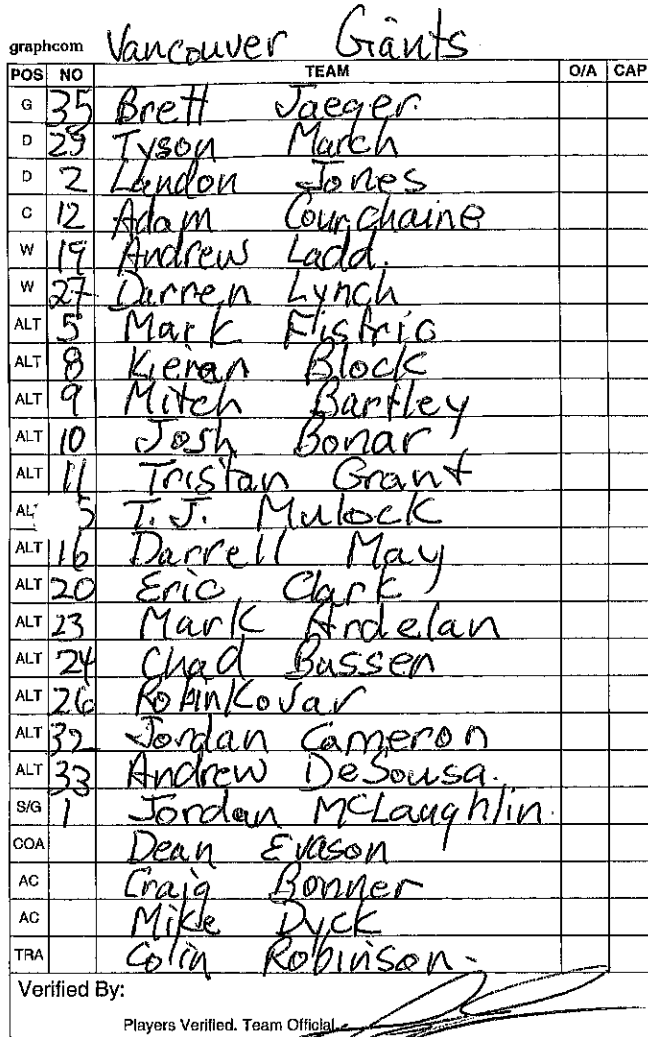 graphcom Vancouver Giants
POS NO TEAM O/A CAP
G 35 Brett Jaeger
D 29 Tyson March
D 2 Landon Jones
C 12 Adam Courchaine
W 19 Andrew Ladd.
W 27 Darren Lynch
ALT 5 Mark Fistric
ALT 8 Kieran Block
ALT 9 Mitch Bartley
ALT 10 Josh Bonar
ALT 11 Tristan Grant
ALT 5 T.J. Mulock
ALT 16 Darrell May
ALT 20 Eric Clark
ALT 23 Mark Ardelan
ALT 24 Chad Bassen
ALT 26 Robin Kovar
ALT 32 Jordan Cameron
ALT 33 Andrew DeSousa.
S/G 1 Jordan McLaughlin.
COA Dean Evason
AC Craig Bonner
AC Mike Dyck
TRA Colin Robinson.
Verified By:
Players Verified. Team Official